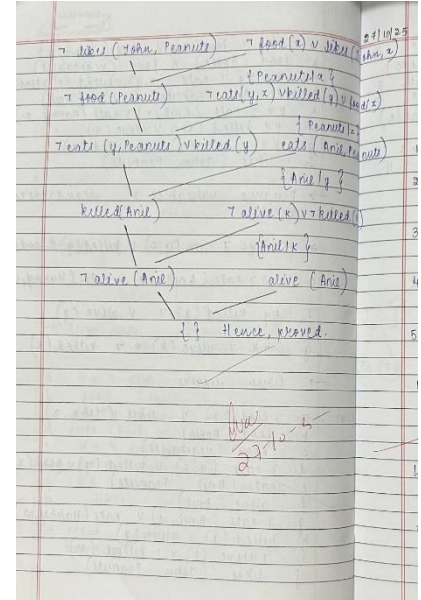 27/10/25
¬ likes (John, Peanuts) ¬ food (x) ∨ likes (John, x)
{Peanuts/x}
¬ food (Peanuts) ¬ eats (y, z) ∨ killed (y) ∨ food (z)
{Peanuts/z}
¬ eats (y, Peanuts) ∨ killed (y) eats (Anil, Peanuts)
{Anil/y}
killed (Anil) ¬ alive (k) ∨ ¬ killed (k)
{Anil/k}
¬ alive (Anil) alive (Anil)
{ } Hence, proved.
27-10-25